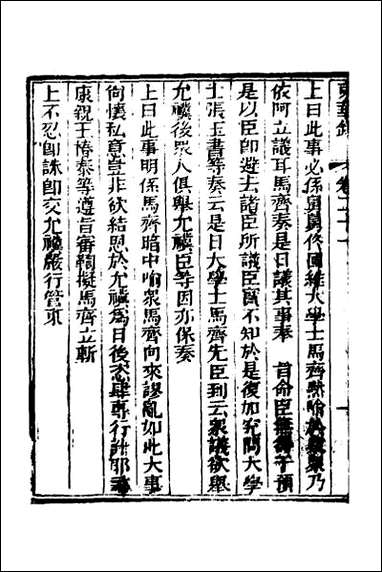 東華錄 卷二十一
上曰此事必係舅舅佟國維大學士馬齊默喻於衆衆乃
依阿立議耳馬齊奏是日議其事奉 旨命臣無得干預
是以臣卽避去諸臣所議臣實不知於是復加究問大學
士張玉書等奏云是日大學士馬齊先臣到云衆議欲舉
允禩後眾人俱舉允禩臣等因亦保奏
上曰此事明係馬齊暗中喻衆馬齊向來謬亂如此大事
尙懷私意豈非欲結恩於允禩爲日後恣肆專行計邪
康親王椿泰等遵旨審鞫擬馬齊立斬
上不忍卽誅卽交允禩嚴行管束